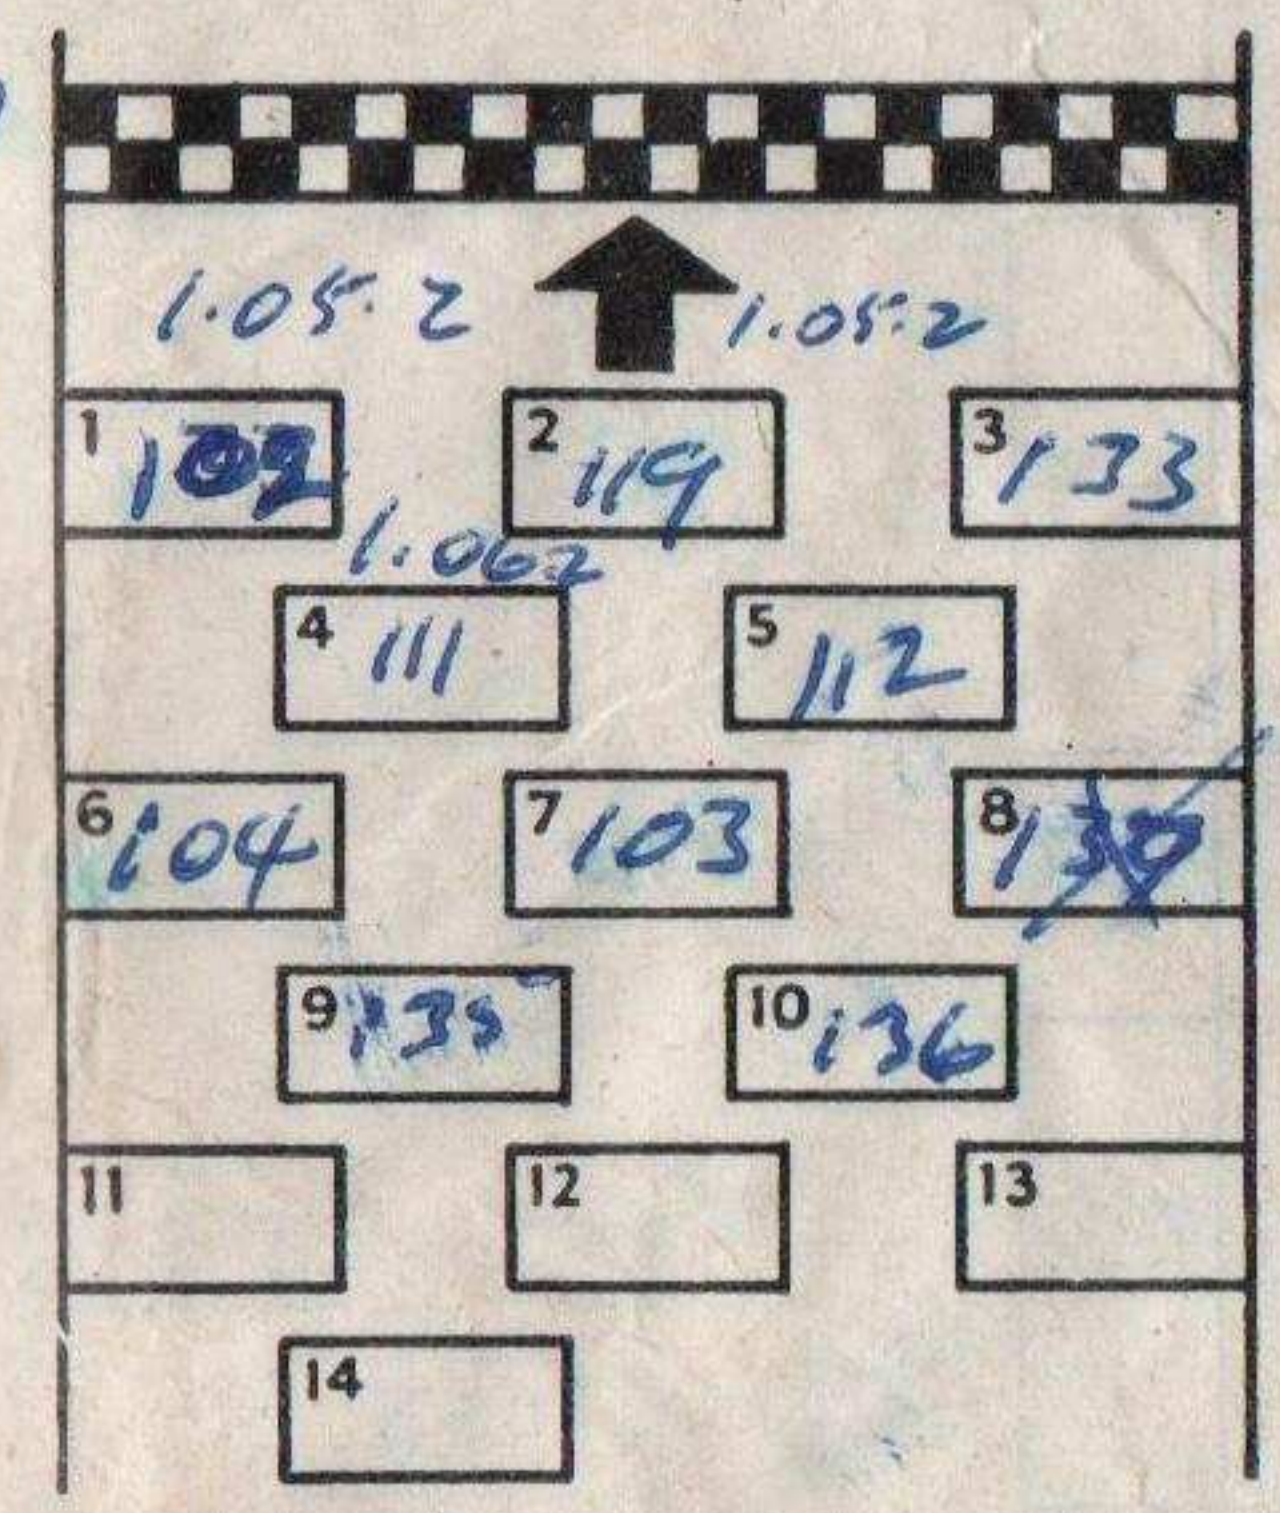 1.05.2 1.05.2
1 102 2 119 3 133
1.062
4 111 5 112
6 104 7 103 8
9 135 10 136
11 12 13
14